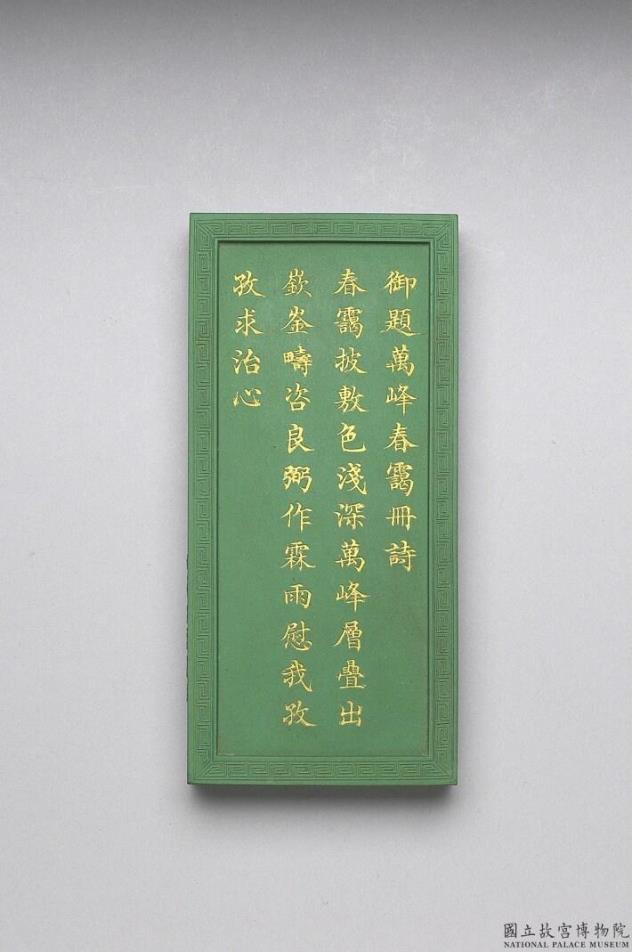 御題萬峰春靄冊詩
春靄披敷色淺深萬峰層疊出
嶔崟疇咨良弼作霖雨慰我孜
孜求治心
國立故宮博物院
NATIONAL PALACE MUSEUM